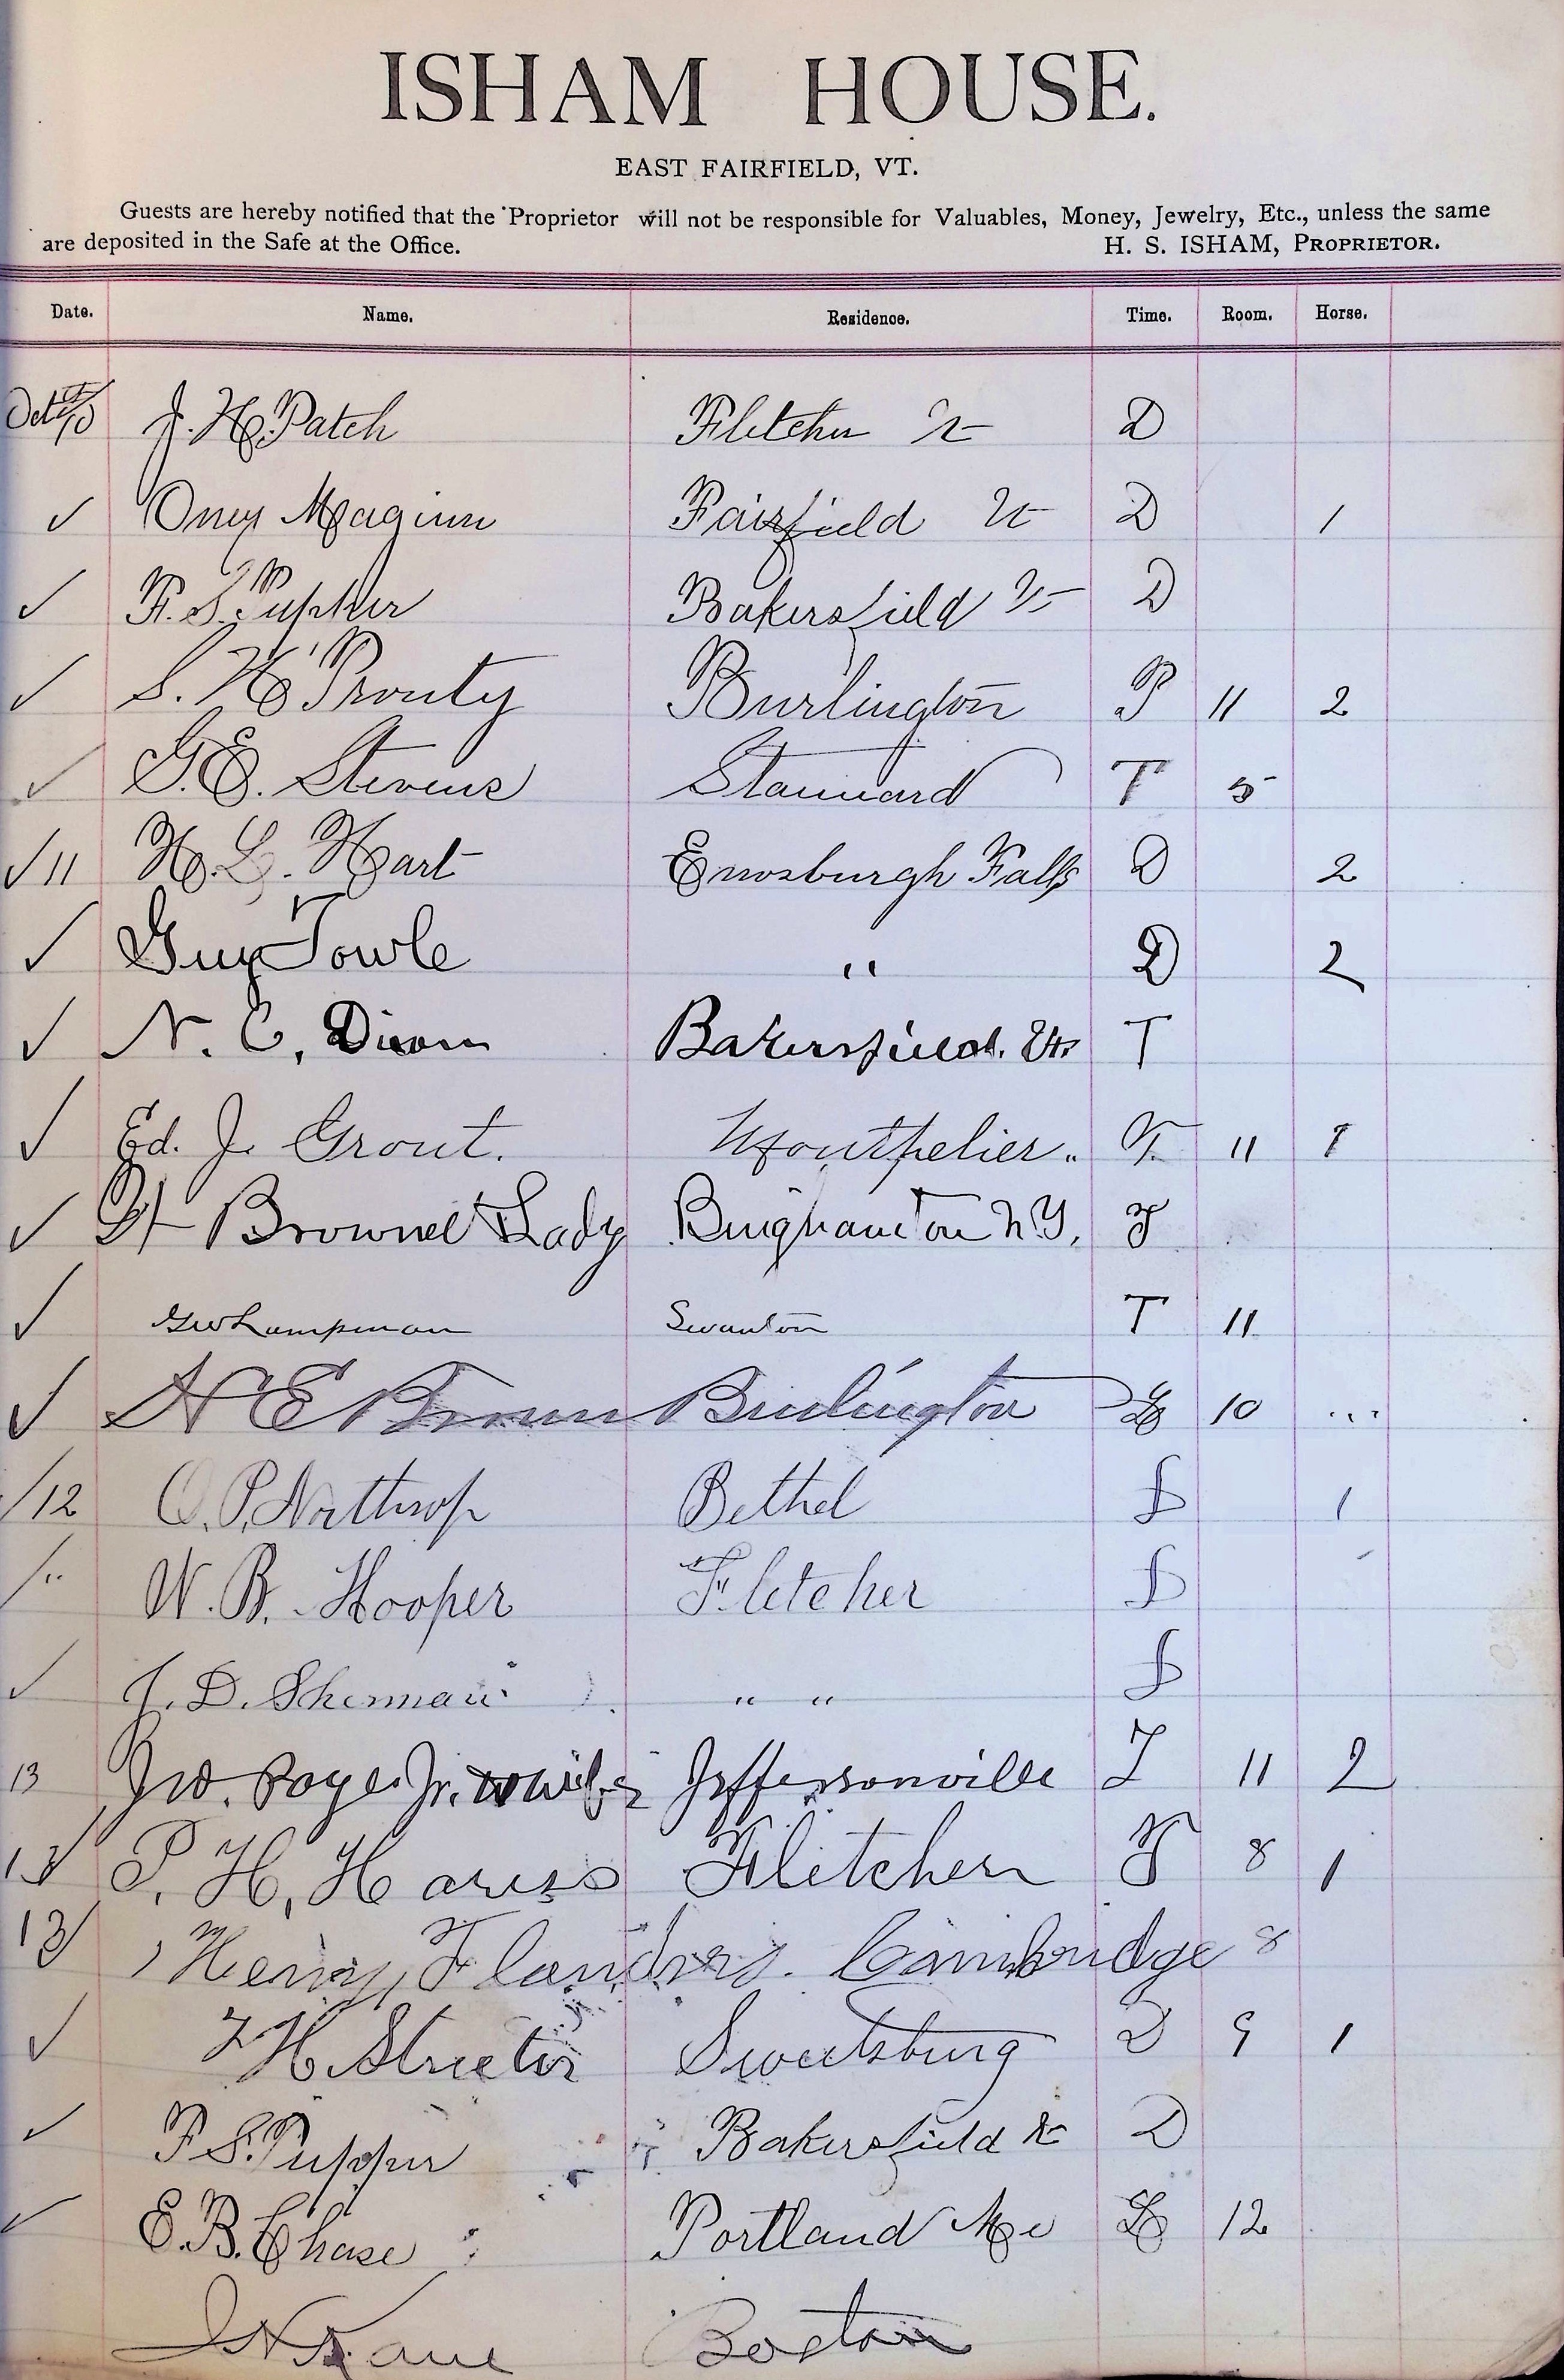 ISHAM HOUSE.
EAST FAIRFIELD, VT.
Guests are hereby notified that the Proprietor will not be responsible for Valuables, Money, Jewelry, Etc., unless the same
are deposited in the Safe at the Office. H. S. ISHAM, PROPRIETOR.
Date. Name. Residence. Time. Room. Horse.
Oct 10 J. H. Patch Fletcher Vt D
✓ Oney Maginn Fairfield Vt D 1
✓ F. S. Tupper Bakersfield Vt D
✓ S. H. Prouty Burlington P 11 2
✓ G. E. Stevens Stannard T 5
✓ 11 H. L. Hart Enosburgh Falls D 2
✓ Guy Towle " D 2
✓ N. C. Dixon Bakersfield. Vt. T
✓ Ed. J. Grout. Montpelier. T. 11 1
✓ Brownel & Lady Binghamton N.Y. T
✓ G W Lampman Swanton T 11
✓ A E Brown Burlington L 10 ...
/12 O. P. Northrop Bethel S 1
/" W. B. Hooper Fletcher S
✓ J. D. Sherman " " S
13 Jr. & wife Jeffersonville T 11 2
13 P. H. Hariss Fletcher T 8 1
13 Henry Flanders. Cambridge 8
✓ H. Streeter Sweetsburg D 9 1
✓ F. S. Tupper Bakersfield Vt D
✓ E. B. Chase Portland Me L 12
Kane Boston